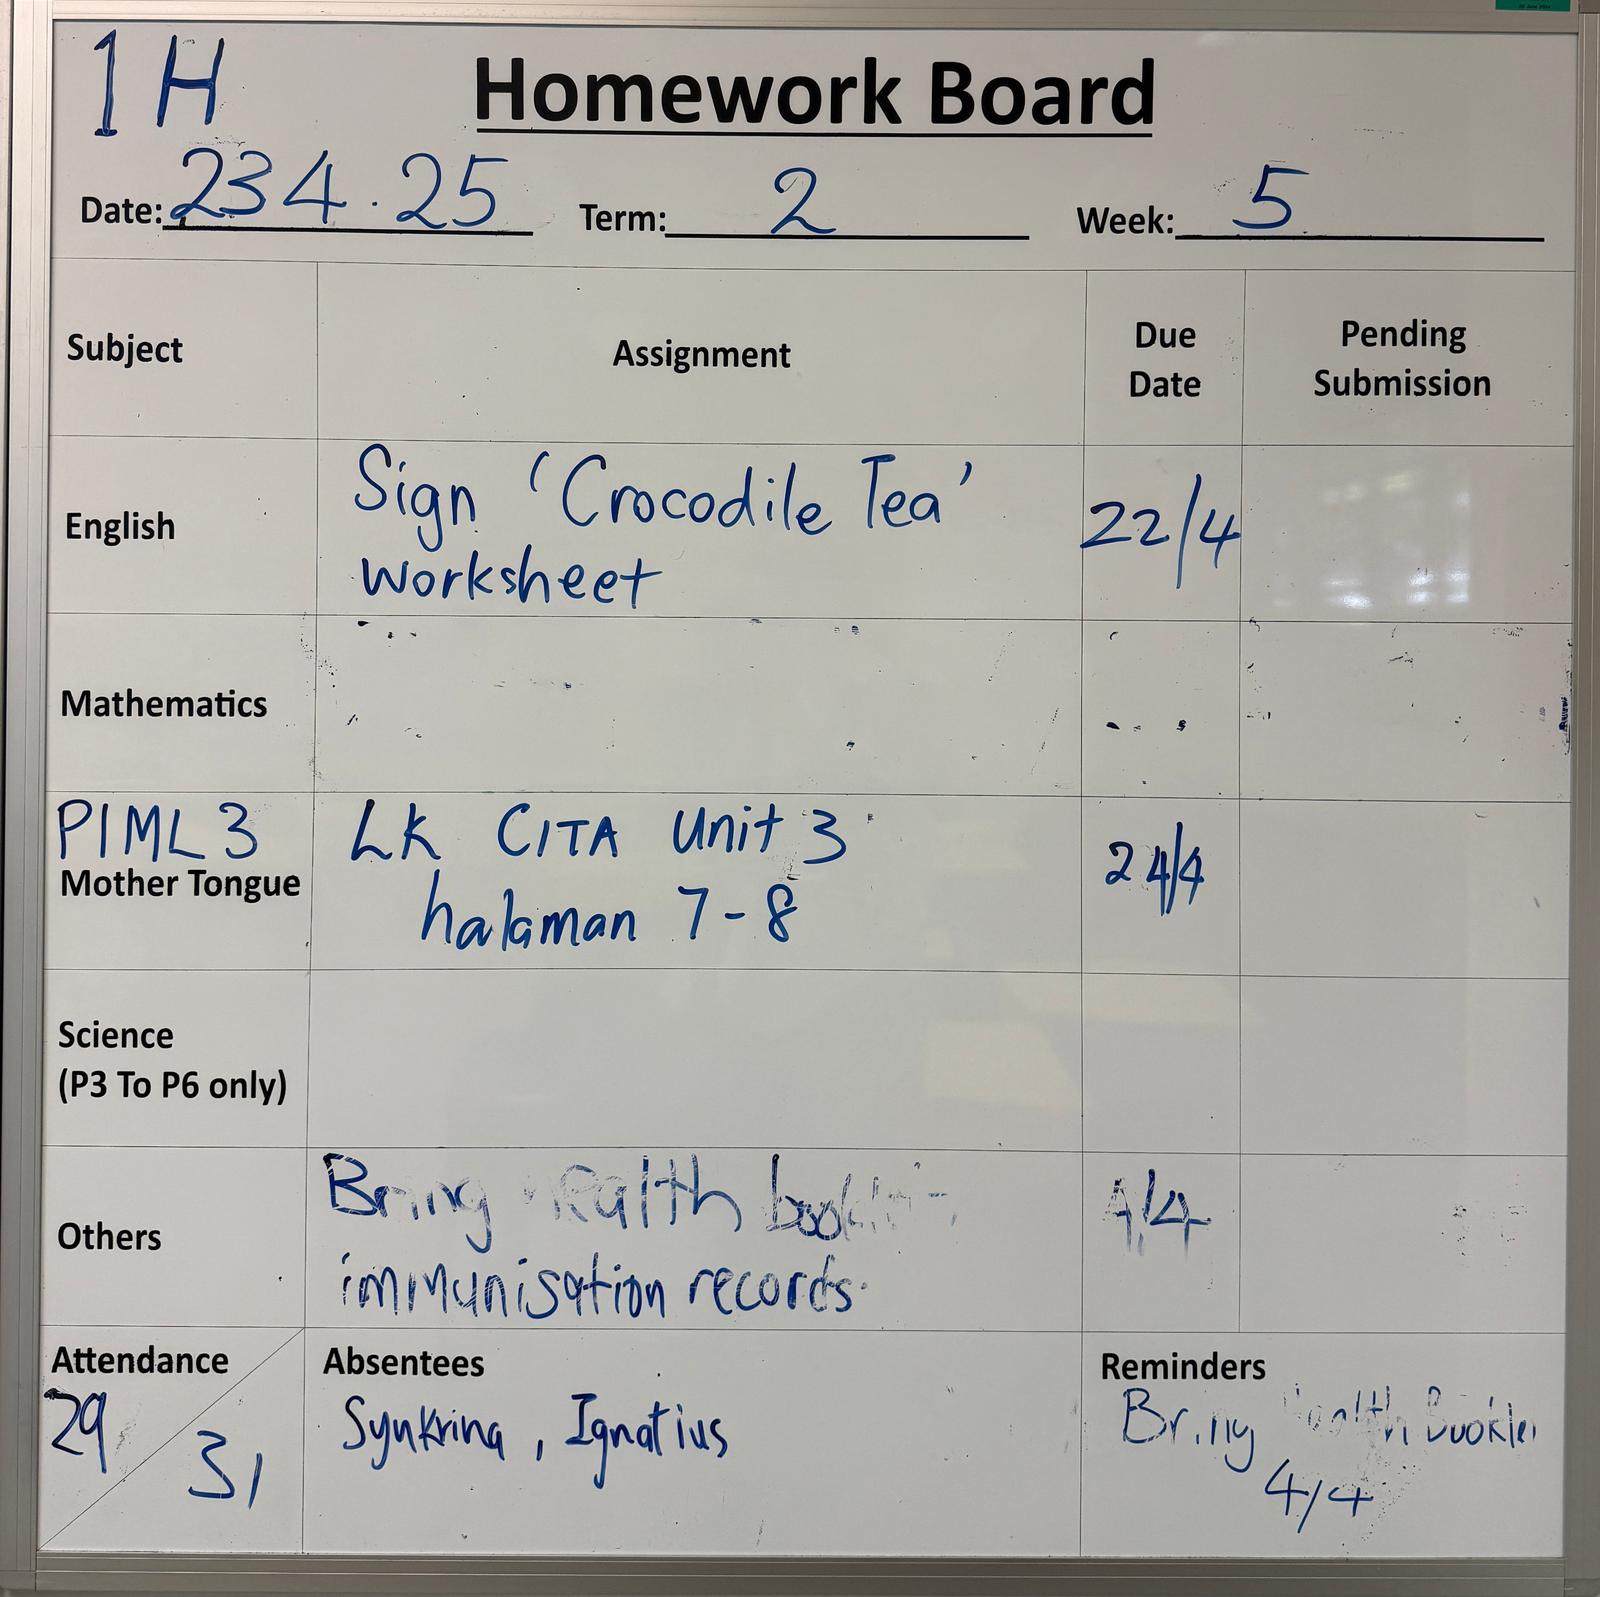 1H
Homework Board
Date: 234.25 Term: 2 Week: 5
Subject Assignment Due Date Pending Submission
English
Sign 'Crocodile Tea'
worksheet
22/4
Mathematics
P1ML3
Mother Tongue
LK CITA Unit 3
halaman 7-8
24/4
Science
(P3 To P6 only)
Others
Bring health
immunisation records.
4/4
Attendance
29
31
Absentees
Synkrina, Ignatius
Reminders
Bring Health Booklet
4/4